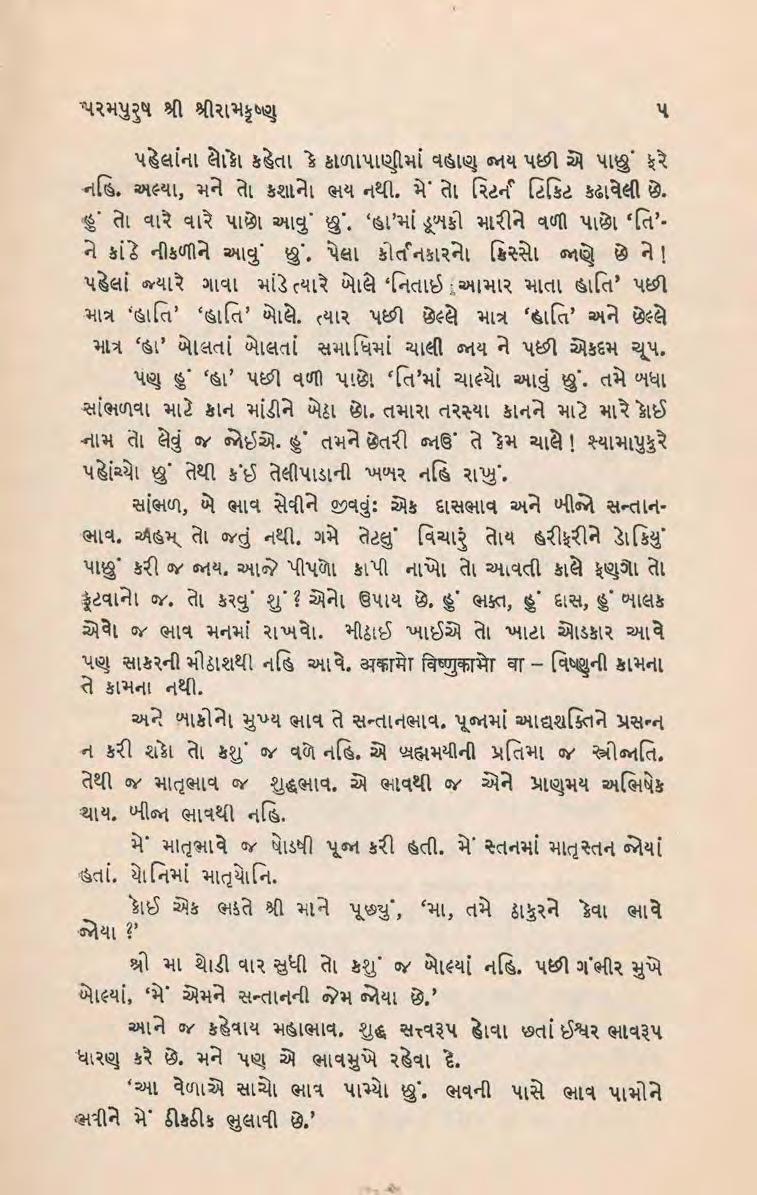 પરમપુરુષ શ્રી શ્રીરામકૃષ્ણ ૫
પહેલાંના લોકો કહેતા કે કાળાપાણીમાં વહાણ જાય પછી એ પાછું ફરે
નહિ. અલ્યા, મને તો કશાનો ભય નથી. મેં તો રિટર્ન ટિકિટ કઢાવેલી છે.
હું તો વારે વારે પાછો આવું છું. ‘હા’માં ડૂબકી મારીને વળી પાછો ‘તિ’-
ને કાંઠે નીકળીને આવું છું. પેલા કીર્તનકારનો કિસ્સો જાણે છે ને!
પહેલાં જ્યારે ગાવા માંડે ત્યારે બોલે ‘નિતાઇ આમાર માતા હાતિ’ પછી
માત્ર ‘હાતિ’ ‘હાતિ’ બોલે. ત્યાર પછી છેલ્લે માત્ર ‘હાતિ’ અને છેલ્લે
માત્ર ‘હા’ બોલતાં બોલતાં સમાધિમાં ચાલી જાય ને પછી એકદમ ચૂપ.
પણ હું ‘હા’ પછી વળી પાછો ‘તિ’માં ચાલ્યો આવું છું. તમે બધા
સાંભળવા માટે કાન માંડીને બેઠા છો. તમારા તરસ્યા કાનને માટે મારે કોઈ
નામ તો લેવું જ જોઈએ. હું તમને છેતરી જાઉં તે કેમ ચાલે! શ્યામાપુકુરે
પહોંચ્યો છું તેથી કંઈ તેલીપાડાની ખબર નહિ રાખું.
સાંભળ, બે ભાવ સેવીને જીવવું: એક દાસભાવ અને બીજો સન્તાન-
ભાવ. અહમ્ તો જતું નથી. ગમે તેટલું વિચારું તોય હરીફરીને ડોકિયું
પાછું કરી જ જાય. આજે પીપળો કાપી નાખો તો આવતી કાલે ફણગો તો
ફૂટવાનો જ. તો કરવું શું? એનો ઉપાય છે. હું ભક્ત, હું દાસ, હું બાલક
એવો જ ભાવ મનમાં રાખવો. મીઠાઈ ખાઈએ તો ખાટા ઓડકાર આવે
પણ સાકરની મીઠાશથી નહિ આવે. अकामो विष्णुकामो वा – વિષ્ણુની કામના
તે કામના નથી.
અને બાકીનો મુખ્ય ભાવ તે સન્તાનભાવ. પૂજામાં આદ્યશક્તિને પ્રસન્ન
ન કરી શકો તો કશું જ વળે નહિ. એ બ્રહ્મમયીની પ્રતિમા જ સ્ત્રીજાતિ.
તેથી જ માતૃભાવ જ શુદ્ધભાવ. એ ભાવથી જ એને પ્રાણમય અભિષેક
થાય. બીજા ભાવથી નહિ.
મેં માતૃભાવે જ ષોડષી પૂજા કરી હતી. મેં સ્તનમાં માતૃસ્તન જોયાં
હતાં. યોનિમાં માતૃયોનિ.
કોઈ એક ભક્તે શ્રી માને પૂછ્યું, ‘મા, તમે ઠાકુરને કેવા ભાવે
જોયા ?’
શ્રી મા થોડી વાર સુધી તો કશું જ બોલ્યાં નહિ. પછી ગંભીર મુખે
બોલ્યાં, ‘મેં એમને સન્તાનની જેમ જોયા છે.’
આને જ કહેવાય મહાભાવ. શુદ્ધ સત્ત્વરૂપ હોવા છતાં ઈશ્વર ભાવરૂપ
ધારણ કરે છે. મને પણ એ ભાવમુખે રહેવા દે.
‘આ વેળાએ સાચો ભાવ પામ્યો છું. ભવની પાસે ભાવ પામીને
ભવીને મેં ઠીકઠીક ભુલાવી છે.’